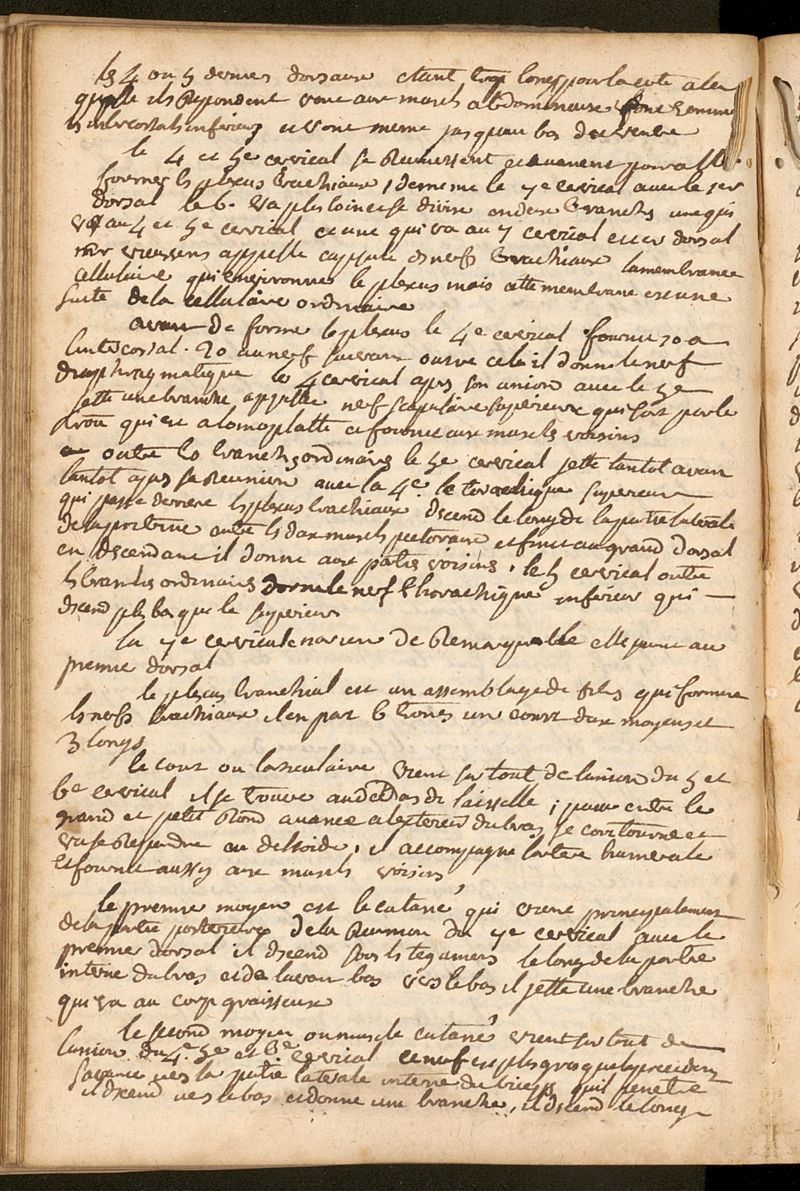 les 4 ou 5 derniers dorsaux etant trop longs pour la cote a la
quelle ils Repondent vont aux muscls abdominaux sone comme
ls intercostals inferieurs et vont meme jusquau bas du ventre
le 4 et 5e cervical se Reunissent et avancent pour aller
former ls plexus brachiaux, de meme le 7e cervical avec le 1er
dorsal le 6e va plus loin et se divise en deux branches une qui
va au 4 et 5e cervical et une qui va au 7 cervical et 1er dorsal
mr vieussens appelle capsule des nerfs brachiaux la membrane
cellulaire qui environne le plexus mais cette membrane est une
suite de la cellulaire ordinaire
avant de former le plexus le 4e cervical fournit 1o a
lintercostal. 2o au nerf suivant outre cela il donne le nerf
diaphragmatique le 4 cervical apres son union avec le 5e
jette une branche appellée nerf scapulaire superieur qui sort par le
trou qui est a lomoplatte et fournit aux muscls voisins
outre ls branches ordinaires le 5e cervical jette tantot avant
tantot apres sa Reunion avec la 4e. le thorachique superieur
qui passe derriere ls plexus brachiaux descend le long de la partie laterale
de la poitrine entre ls deux muscls pectoraux et finit au grand dorsal
en descendant il donne aux parties voisins, le 5 cervical outre
ls branches ordinaires donne le nerf thorachique inferieur qui
descend plus bas que le superieur
la 7e cervicale na rien de Remarquable elle sunit au
premier dorsal
le plexus branchial est un assemblage de filets qui forment
ls nerfs brachiaux il en part 6 troncs un court deux moyens et
3 longs
le court ou lasticulaire vient sur tout de lunion du 5 et
6e cervical il se trouve au dedas de laisselle; passe entre le
grand et petit Rond avance a lexterieur du bras, se contourne et
va se Repandre au deltoide, il accompagne lartere humerale
et fournit aussy aux muscls voisins
le premier moyen est le cutané qui vient principalement
de la partie posterieure de la Reunion du 7e cervical avec le
premier dorsal il descend sous ls tegumens le long de la partie
interne du bras et de lavant bras vers le bas il jette une branche
qui va au corps graisseux
le second moyen ou muscle cutané vient sur tout de
lunion du 4e. 5e et 6e cervical ce nerf est plus gros que le precedent
savance vers la partie laterale interne du biceps quil penetre
il descend vers le bas et donne une branche, il descend le long